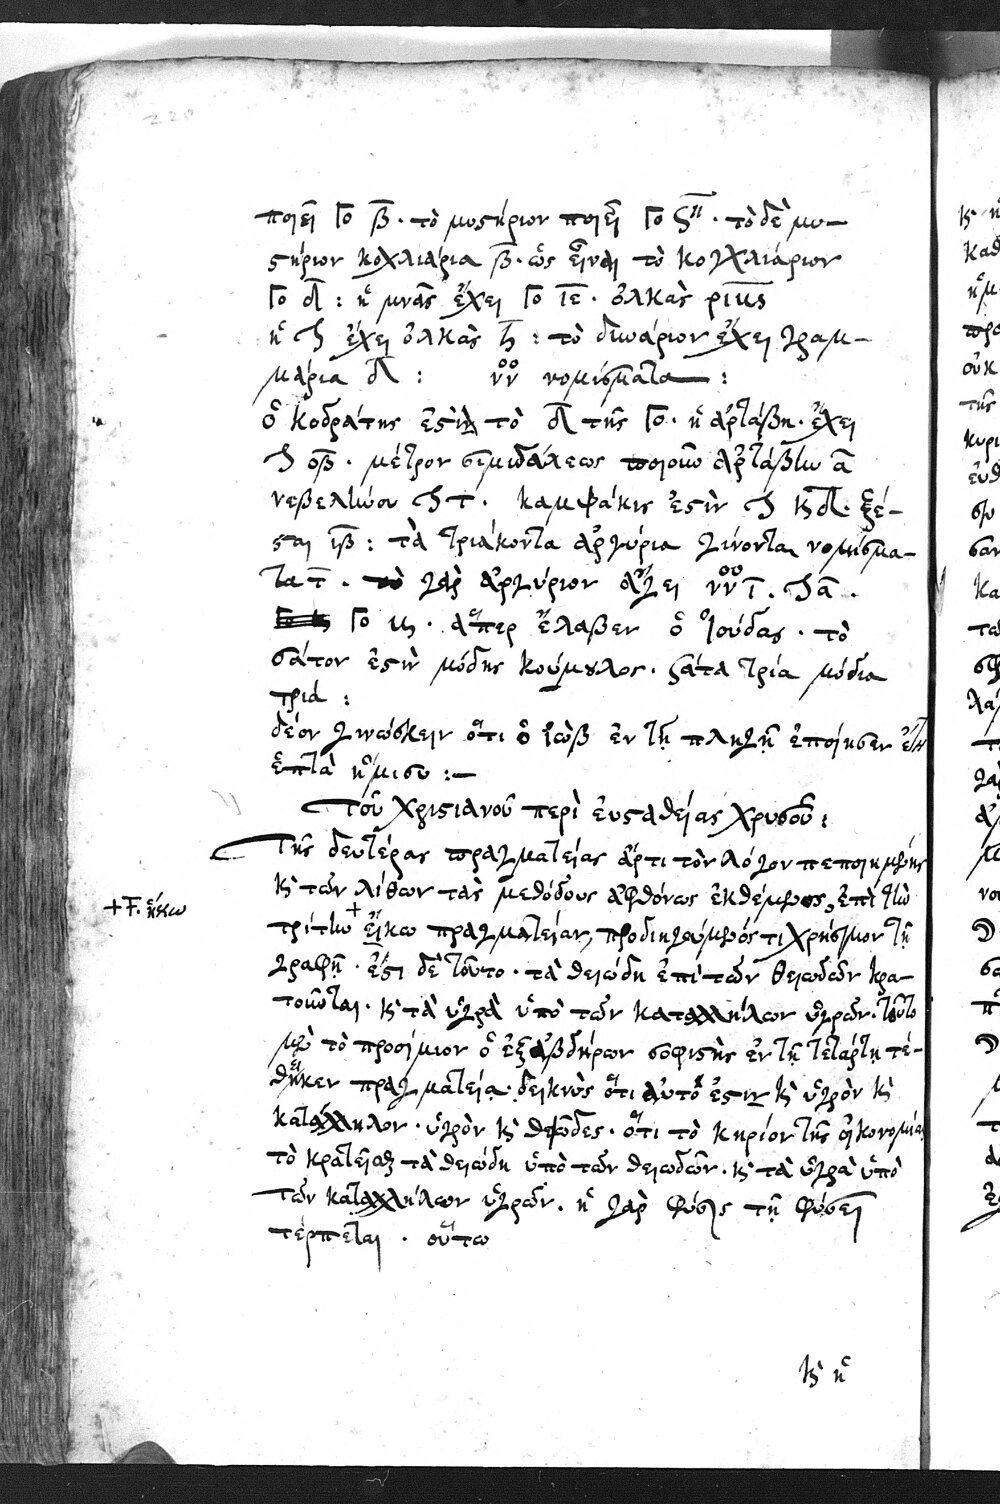 ποιεῖ Γο β̅. τὸ μυστήριον ποιεῖ Γο ϛη. τὸ δὲ μυ-
στήριον κοχλιάρια β̅. ὡς εἶναι τὸ κοχλιάριον
Γο δ̅ : ἡ μνᾶς ἔχει Γο ιε̅. ὁλκὰς
ἡ ἔχει ὁλκὰς : τὸ δινάριον ἔχει γραμ-
μάρια δ̅ : νο
νο νομίσματα :
ὁ κοδράτης ἐστὶ τὸ δ̅ τῆς Γο. ἡ ἀρτάβη. ἔχει
οβ̅. μέτρον σιμιδάλεως ποιοῦν ἀρτάβην α̅
νεβελίνου τ̅. καμψάκις ἐστὶν κδ̅. ξέ-
σται ιβ̅ : τὰ τριάκοντα ἀργύρια γίνονται νομίσμα-
τα τ̅. τὸ γὰρ ἀργύριον ἄγει ι̅. α̅.
Γο. ἅπερ ἔλαβεν ὁ Ἰούδας. τὸ
σάτον ἐστὶν μόδης κούμουλος. σάτα τρία μόδια
τρία :
δέον γινώσκειν ὅτι ὁ ἰὼβ ἐν τῇ πληγῇ ἐποίησεν ἔτη
ἑπτὰ ἥμισυ :-
Τοῦ χριστιανοῦ περὶ εὐσταθείας χρυσοῦ :
Τῆς δευτέρας πραγματείας ἄρτι τὸν λόγον πεποιημένης
κὶ τῶν λίθων τὰς μεθόδους ἀφθόνως ἐκθέμενος, ἐπὶ τὴν
+F. ἥκω
τρίτην + εἴκω πραγματείαν, προδιηγούμενός τι χρήσιμον τῇ
γραφῇ. ἔστι δὲ τοῦτο. τὰ θειώδη ἐπὶ τῶν θειωδῶν κρα-
τοῦνται. κὶ τὰ ὑγρὰ ὑπὸ τῶν καταλλήλων ὑγρῶν. τοῦτο
μὲν τὸ προοίμιον ὁ ἐξ ἀβδήρων σοφιστὴς ἐν τῇ τετάρτῃ τέ-
θηκεν πραγματείᾳ. δεικνὺς ὅτι αὐτό ἐστιν κὶ ὑγρὸν κὶ
κατάλληλον. ὑγρὸν κὶ θειῶδες. ὅτι τὸ κηρίον τῆς οἰκονομίας
τὸ κρατεῖσθαι τὰ θειώδη ὑπὸ τῶν θειωδῶν. κὶ τὰ ὑγρὰ ὑπὸ
τῶν καταλλήλων ὑγρῶν. ἡ γὰρ φύσις τῇ φύσει
τέρπεται. οὕτω
κὶ ἡ